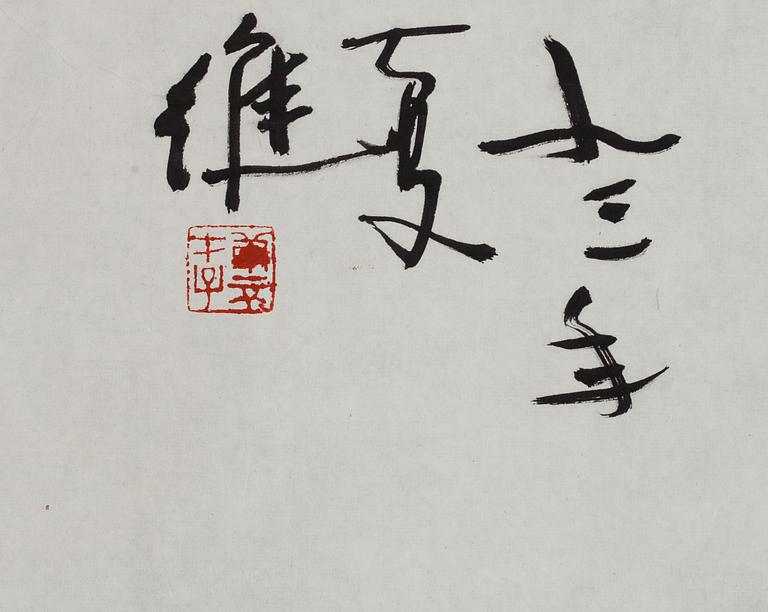 十三年
夏
維